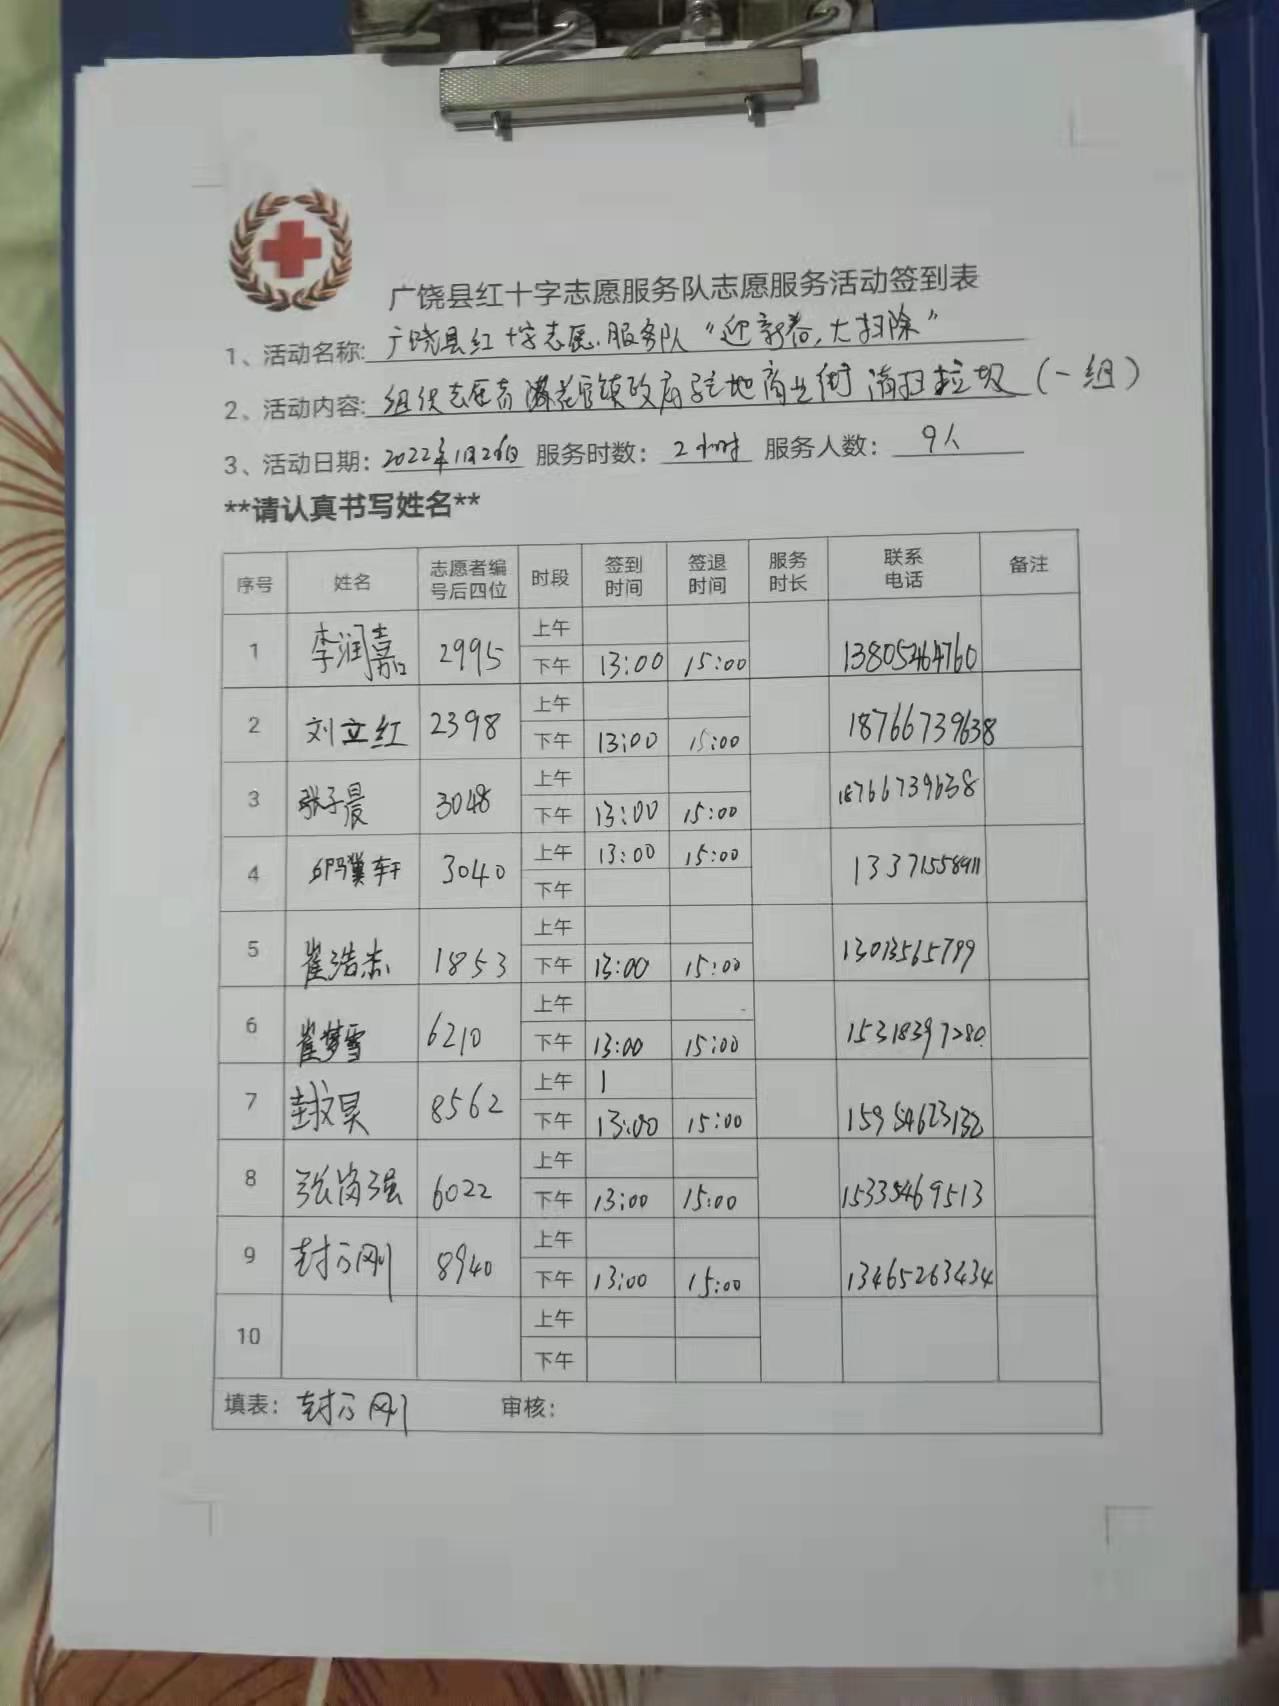 广饶县红十字志愿服务队志愿服务活动签到表
1、活动名称: 广饶县红十字志愿服务队“迎新春,大扫除”
2、活动内容: 组织志愿者 花官镇政府驻地商业街清扫垃圾(一组)
3、活动日期: 2022年1月26日 服务时数: 2小时 服务人数: 9人
**请认真书写姓名**
序号 姓名 志愿者编号后四位 时段 签到时间 签退时间 服务时长 联系电话 备注
1 李润嘉 2995 上午
下午 13:00 15:00 13805464760
2 刘立红 2398 上午
下午 13:00 15:00 18766739638
3 张子晨 3048 上午
下午 13:00 15:00 18766739638
4 3040 上午 13:00 15:00 13371558911
下午
5 崔浩杰 1853 上午
下午 13:00 15:00
6 崔梦雪 6210 上午
下午 13:00 15:00 15318397280
7 封文昊 8562 上午 1
下午 13:00 15:00 15954623132
8 张岗强 6022 上午
下午 13:00 15:00 15335469513
9 封方刚 8940 上午
下午 13:00 15:00 13465263434
10 上午
下午
填表: 封方刚 审核: